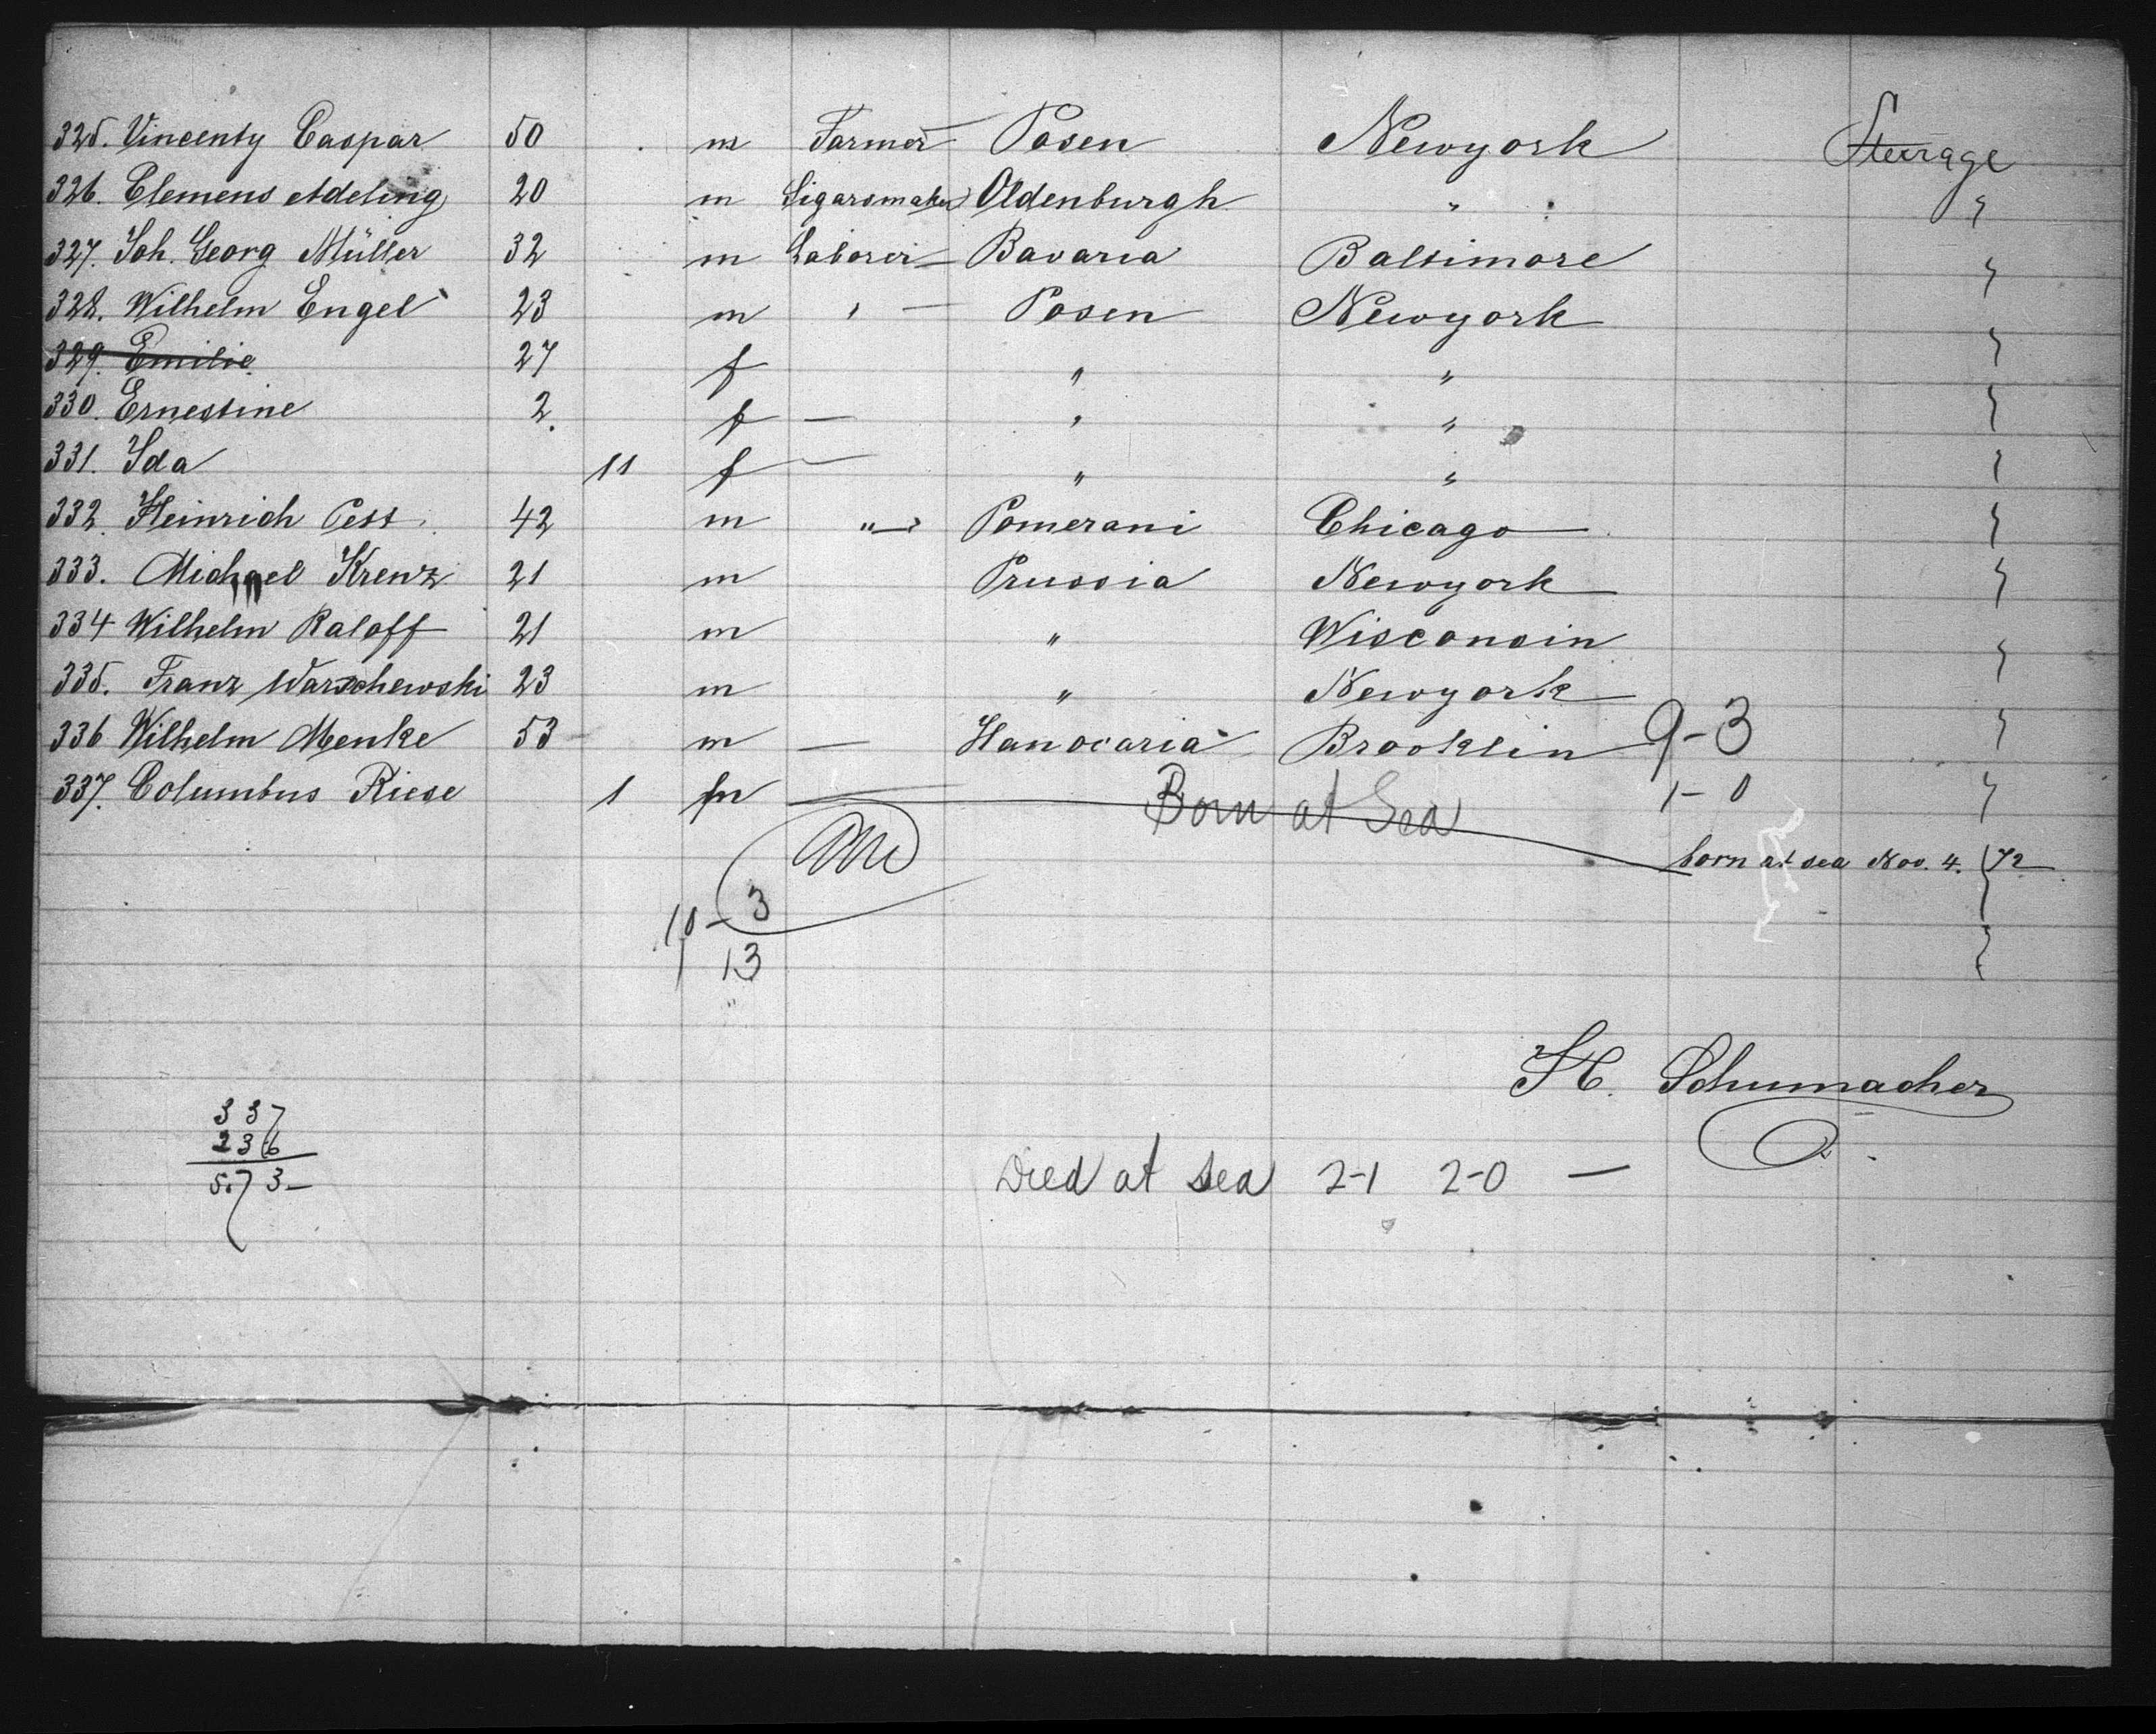 325. Vincenty Caspar 50 m Farmer Posen Newyork Steerage
326. Clemens Adeling 20 m Sigarsmaker Oldenburgh " "
327. Joh. Georg Müller 32 m Laborer Bavaria Baltimore "
328. Wilhelm Engel 23 m " — Posen Newyork "
329. Emilie 27 f " " "
330. Ernestine 2 f — " " "
331. Ida 11 f — " " "
332. Heinrich Pest 42 m "— Pomerani Chicago "
333. Michael Krenz 21 m Prussia Newyork "
334 Wilhelm Raloff 21 m " Wisconsin "
335. Franz Warschewski 23 m " Newyork "
336 Wilhelm Menke 53 m — Hanovaria Brooklin 9-3 "
337. Columbus Riese 1 m Born at Sea 1-0 "
born at sea Nov. 4. 72
10-3
13
H. Schumacher
337
236
573-
Died at sea 2-1 2-0 —